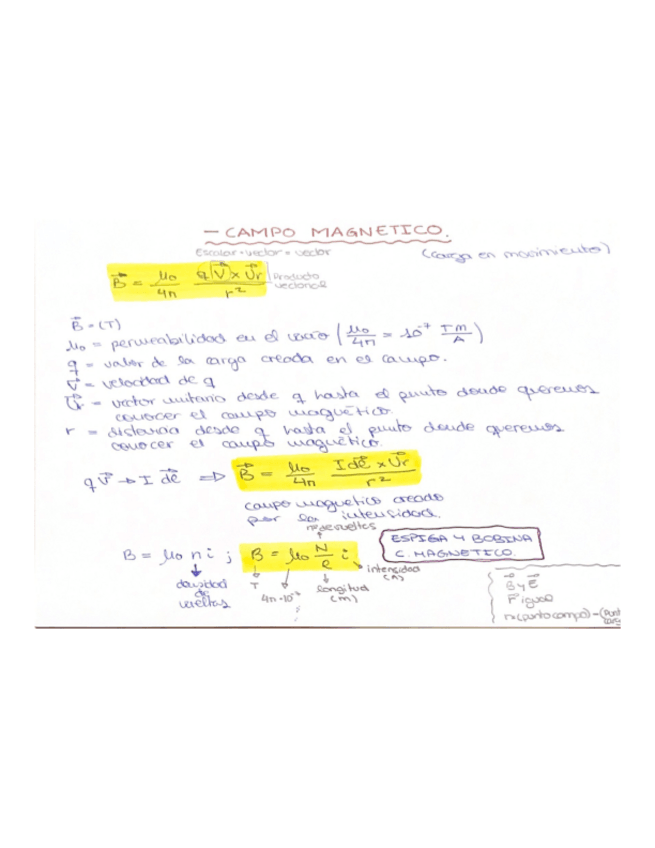 - CAMPO MAGNETICO.
Escalar · vector = vector
(carga en movimiento)
B⃗ = μ₀/4π q(V⃗)×U⃗r/r² Producto vectorial
B⃗ = (T)
μ₀ = permeabilidad en el vacío (μ₀/4π = 10⁻⁷ Tm/A)
q = valor de la carga creada en el campo.
V⃗ = velocidad de q
U⃗r = vector unitario desde q hasta el punto donde queremos
conocer el campo magnético.
r = distancia desde q hasta el punto donde queremos
conocer el campo magnético.
qV⃗ → I dl⃗ ⇒ B⃗ = μ₀/4π I dl⃗ × U⃗r/r²
campo magnetico creado
por la intensidad.
nº de vueltas
B = μ₀ n i ; B = μ₀ N/l i
ESPIGA Y BOBINA
C. MAGNETICO.
densidad de vueltas
T
4π·10⁻⁷
longitud (m)
intensidad (A)
B⃗ y E⃗
r⃗ igual
r=(punto campo)-(Punt